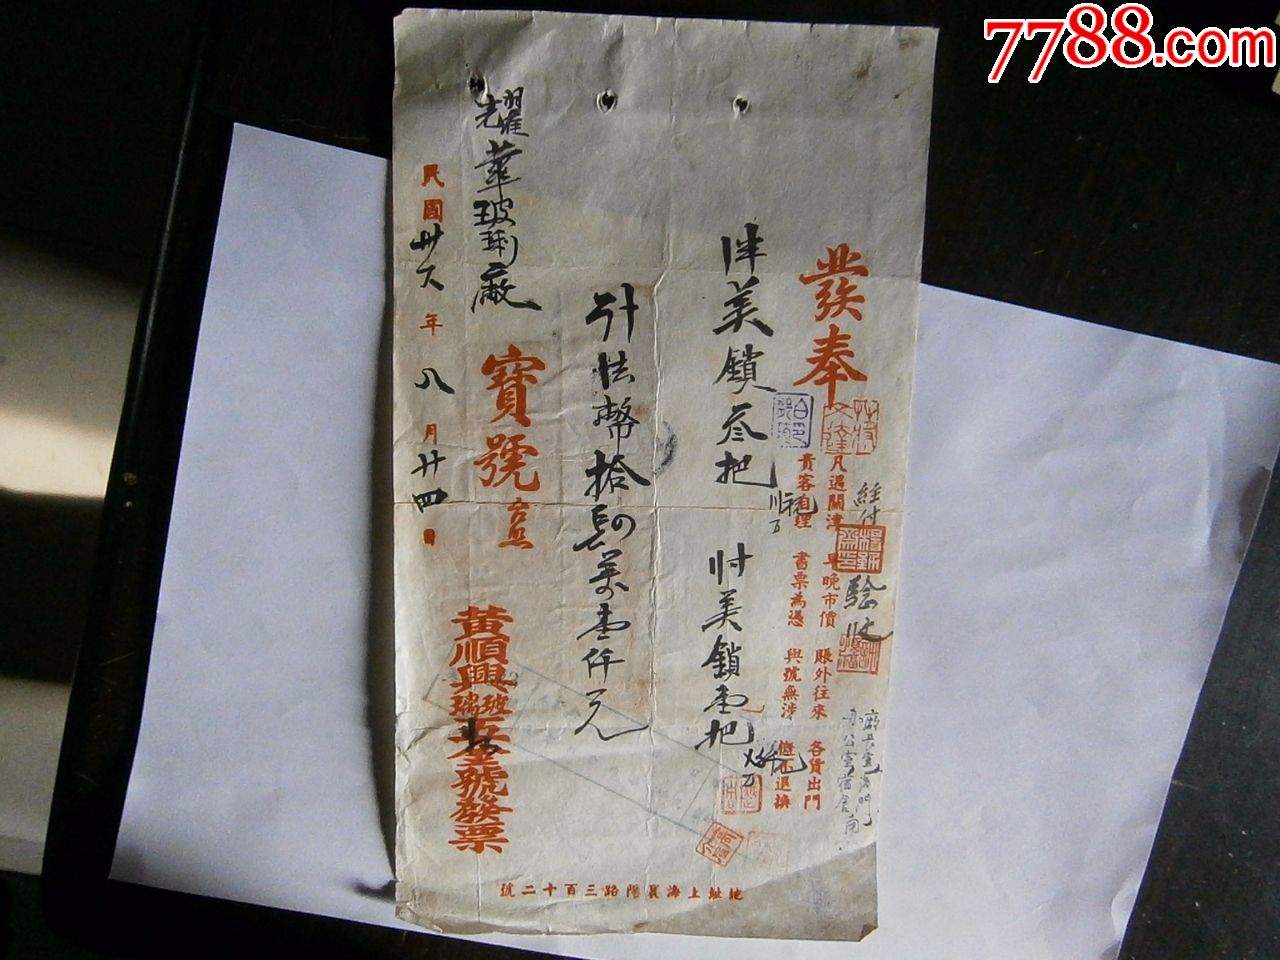 7788.com
發奉
凡遇關津
貴客自理
早晚市價
書票為憑
賬外往來
與號無涉
各貨出門
概不退換
驗收
美鎖叁把
美鎖壹把
計法幣拾肆萬壹仟元
耀華玻璃廠
寶號 台照
黃順興玻璃五金號發票
民國卅六年八月廿四日
地址上海襄陽路三百十二號